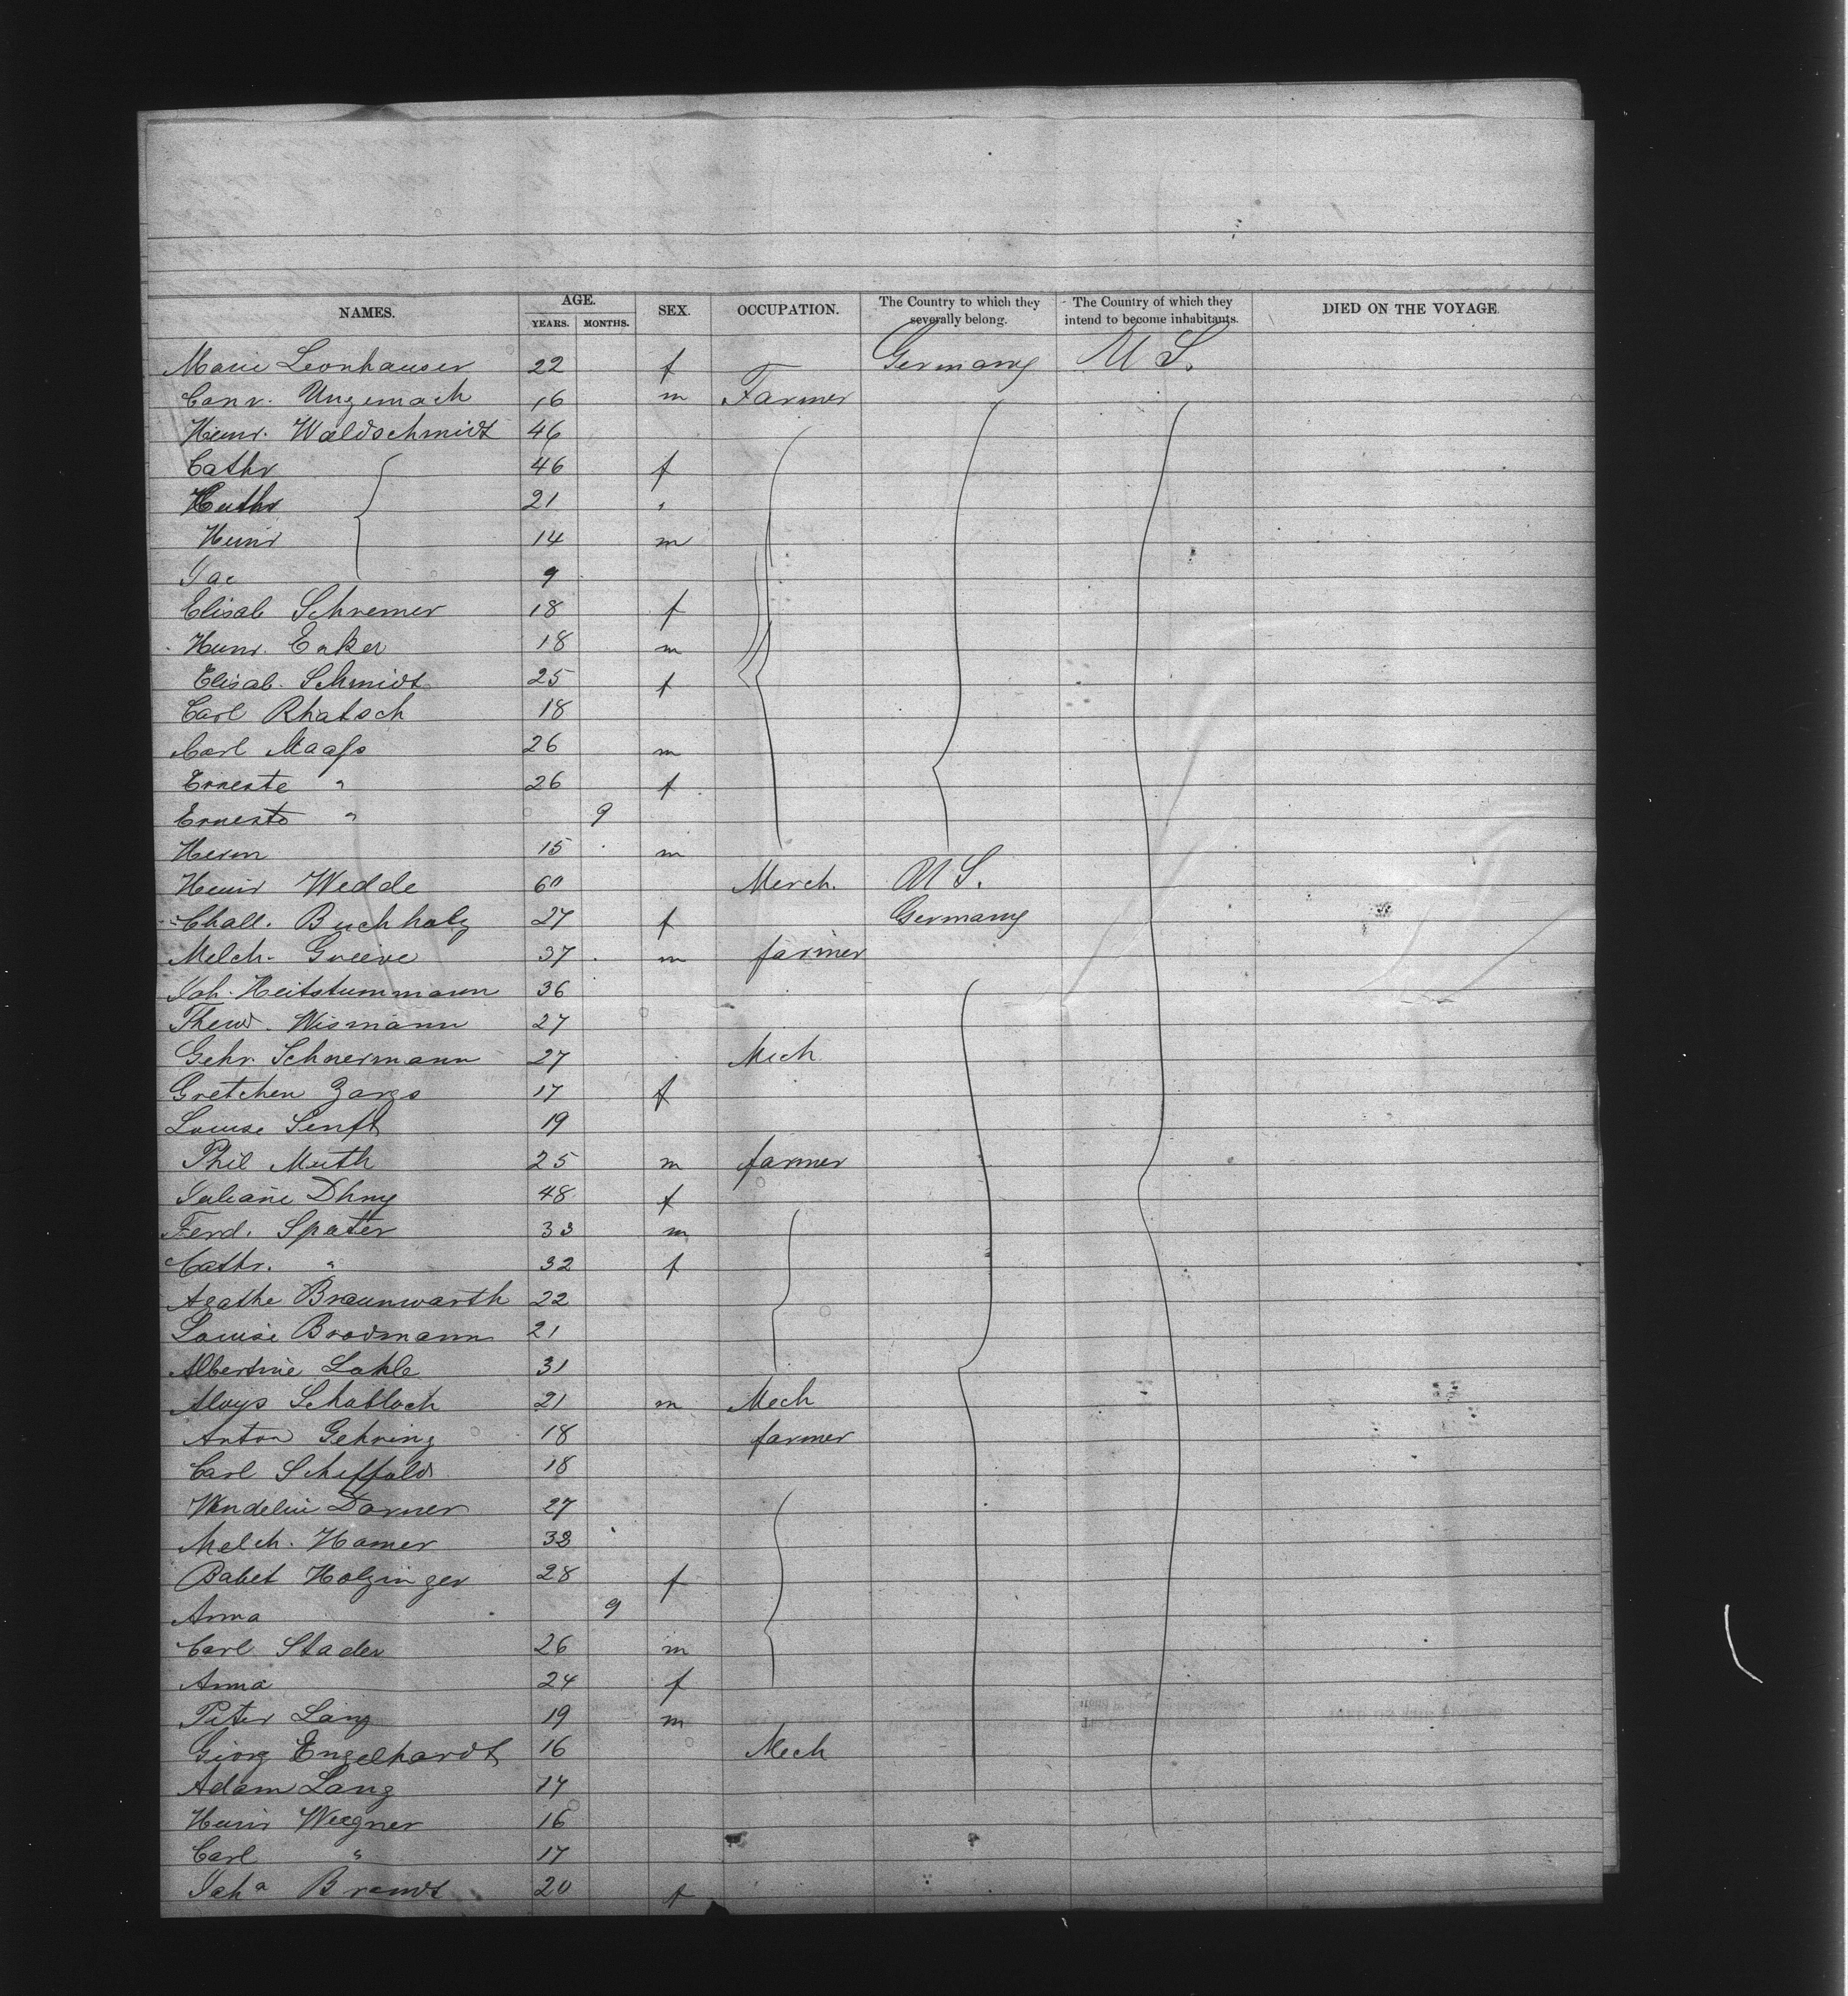 NAMES. AGE. SEX. OCCUPATION. The Country to which they severally belong. The Country of which they intend to become inhabitants. DIED ON THE VOYAGE.
YEARS. MONTHS.
Marie Leonhauser 22 f Germany U S.
Conr. Ungemach 16 m Farmer
Heinr. Waldschmidt 46
Cathr 46 f
21 "
Heinr 14 m
Jac 9
Elisab Schremer 18 f
Heinr. Enker 18 m
Elisab. Schmidt 25 f
Carl Rhatsch 18
Carl Maaß 26 m
Erneste " 26 f
Ernesto " 9
Herm 15 m
Heinr Wedde 60 Merch. U S.
Chall. Buchholz 27 f Germany
Melch. Greeve 37 m farmer
Joh. Heitstummann 36
Theod. Wismann 27
Gehr. Schnermann 27 Mech
Gretchen Zargs 17 f
Louise Senft 19
Phil Muth 25 m farmer
Juliane Dhny 48 f
Ferd. Spater 33 m
Cathr. " 32 f
Agathe Braunwarth 22
Louise Brodmann 21
Albertine Lohle 31
Aloys Schabloch 21 m Mech
Anton Gehring 18 farmer
Carl Scheffold 18
Wendelin Dorner 27
Melch. Hamer 32
Babet Holzinger 28 f
Anna 9
Carl Stader 26 m
Anna 24 f
Peter Lang 19 m
Georg Engelhardt 16 Mech
Adam Lang 17
Heinr Wegner 16
Carl " 17
Joha Brandt 20 f